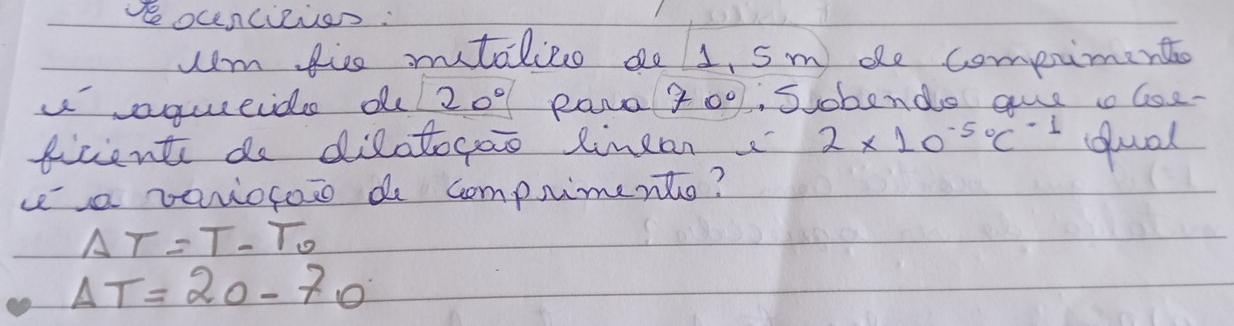 exercícios:
Um fio metálico de 1,5m de comprimento
é aquecido de 20° para 70°. Sabendo que o coe-
ficiente de dilatação linear é 2 x 10⁻⁵°C⁻¹ qual
é a variação de comprimento?
ΔT = T - T₀
ΔT = 20 - 70